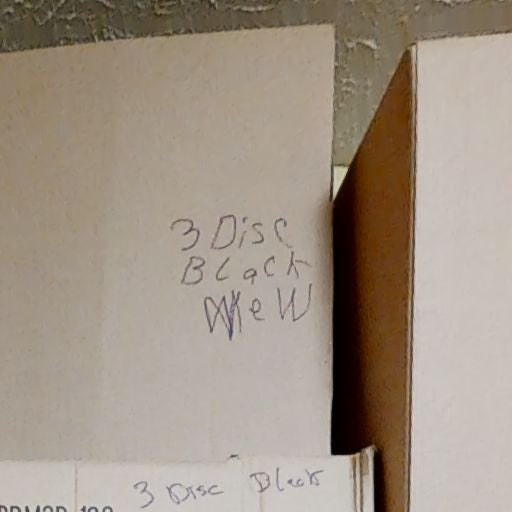 3 Disc
Black
New
3 Disc Black